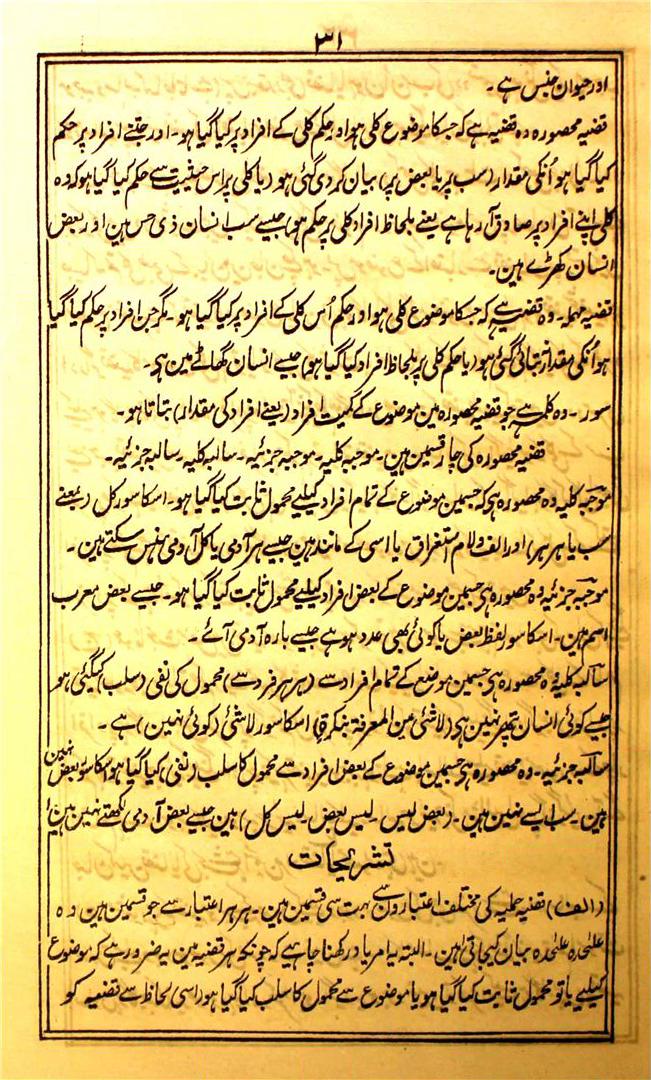 ۳۱
اور حیوان جنس ہے۔
قضیہ محصورہ وہ قضیہ ہے کہ جسکا موضوع کلی ہو اور حکم کلی کے افراد پر کیا گیا ہو۔ اور جتنے افراد پر حکم
کیا گیا ہو اُنکی مقدار (سب پر یا بعض پر) بیان کر دی گئی ہو (یا کلی پر اس حیثیت سے حکم کیا گیا ہو کہ وہ
کلی اپنے افراد پر صادق آرہا ہے یعنے بلحاظ افراد کلی پر حکم ہو) جیسے سب انسان ذی حس ہین اور بعض
انسان کھڑے ہین۔
قضیہ مہملہ۔ وہ قضیہ ہے کہ جسکا موضوع کلی ہو اور حکم اُس کلی کے افراد پر کیا گیا ہو۔ مگر جن افراد پر حکم کیا گیا
ہو اُنکی مقدار نہ بتائی گئی ہو (یا حکم کلی پر بلحاظ افراد کیا گیا ہو) جیسے انسان گھاٹے مین ہی۔
سور۔ وہ کلمہ ہے جو قضیہ محصورہ مین موضوع کے کمیت افراد (یعنے افراد کی مقدار) بتاتا ہو۔
قضیہ محصورہ کی چار قسمین ہین۔ موجبہ کلیہ۔ موجبہ جزئیہ۔ سالبہ کلیہ۔ سالبہ جزئیہ۔
موجبہ کلیہ وہ محصورہ ہی کہ جسمین موضوع کے تمام افراد کیلیے محمول ثابت کیا گیا ہو۔ اسکا سور کل (بمعنے
سب یا ہر ہر) اور الف ولام استغراق یا اسی کے مانند ہین جیسے ہر آدمی یا کل آدمی ہنس سکتے ہین۔
موجبہ جزئیہ وہ محصورہ ہی جسمین موضوع کے بعض افراد کیلیے محمول ثابت کیا گیا ہو۔ جیسے بعض معرب
اسم ہین۔ اسکا سور لفظ بعض یا کوئی بھی عدد ہو ہے جیسے بارہ آدمی آئے۔
سالبہ کلیہ وہ محصورہ ہی جسمین موضوع کے تمام افراد سے (ہر ہر فرد سے) محمول کی نفی (سلب) کیگئی ہو
جیسے کوئی انسان پتھر نہین ہی (لاشئی من المعرفة بنکرة) اسکا سور لاشئی (کوئی نہین) ہے۔
سالبہ جزئیہ۔ وہ محصورہ ہی جسمین موضوع کے بعض افراد سے محمول کا سلب (نفی) کیا گیا ہو اسکا سور بعض نہین
ہین۔ سب ایسے نہین ہین۔ (بعض لیس۔ لیس بعض۔ لیس کل) ہین جیسے بعض آدمی لکھتے نہین ہین
تشریحات
(الف) قضیہ حملیہ کی مختلف اعتبارون سے بہت سی قسمین ہین۔ ہر ہر اعتبار سے جو قسمین ہین وہ
علحدہ علحدہ بیان کیجاتی ہین۔ البتہ یہ امر یاد رکھنا چاہیے کہ چونکہ ہر قضیہ مین یہ ضرور ہے کہ موضوع
کیلیے یا تو محمول ثابت کیا گیا ہو یا موضوع سے محمول کا سلب کیا گیا ہو اسی لحاظ سے قضیہ کو